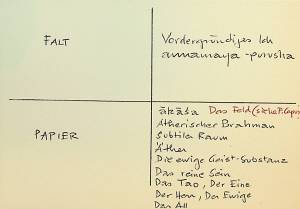 FALT
Vordergründiges Ich
annamaya - purusha
PAPIER
ākāśa Das Feld (siehe F. Capra)
Ätherischer Brahman
Subtiler Raum
Äther
Die ewige Geist-Substanz
Das reine Sein
Das Tao, Der Eine
Der Herr, Der Ewige
Das All